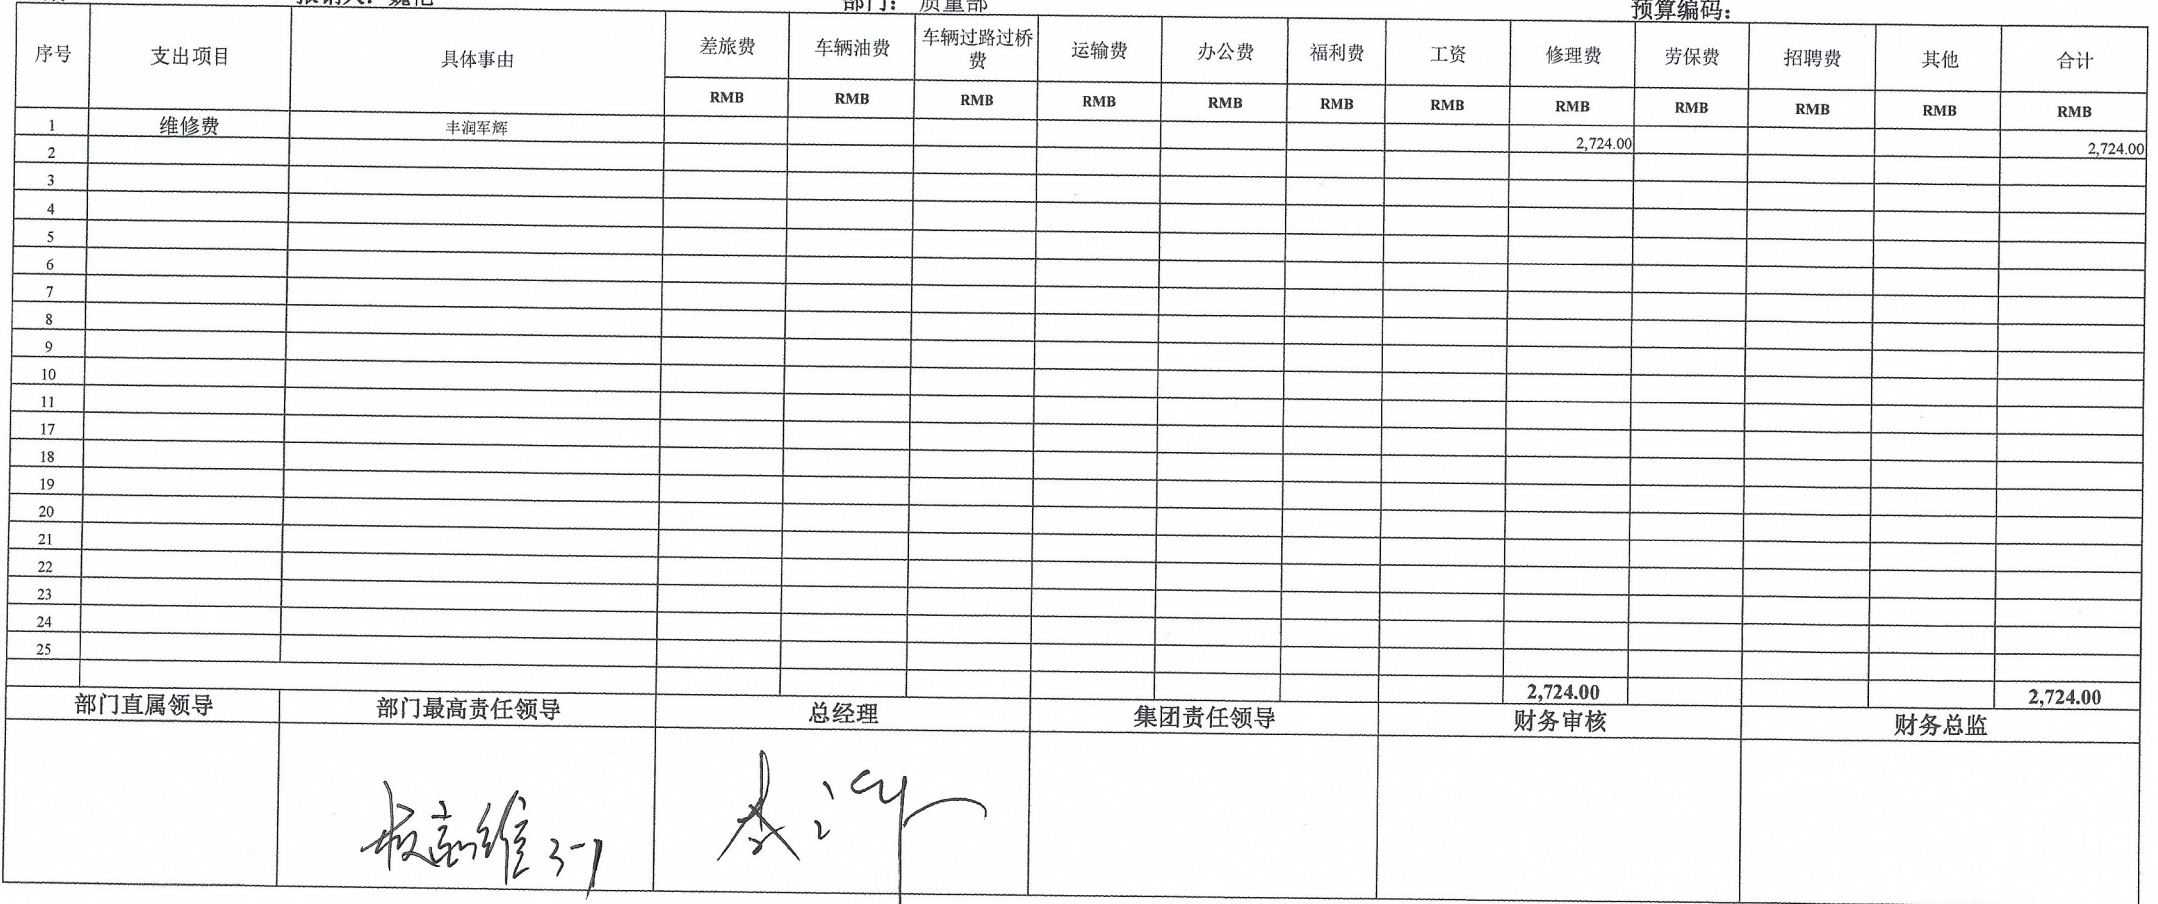 部门： 质量部
预算编码：
序号 支出项目 具体事由 差旅费 车辆油费 车辆过路过桥费 运输费 办公费 福利费 工资 修理费 劳保费 招聘费 其他 合计
RMB RMB RMB RMB RMB RMB RMB RMB RMB RMB RMB RMB
1 维修费 丰润军辉 2,724.00 2,724.00
2
3
4
5
6
7
8
9
10
11
17
18
19
20
21
22
23
24
25
2,724.00 2,724.00
部门直属领导 部门最高责任领导 总经理 集团责任领导 财务审核 财务总监
3-1